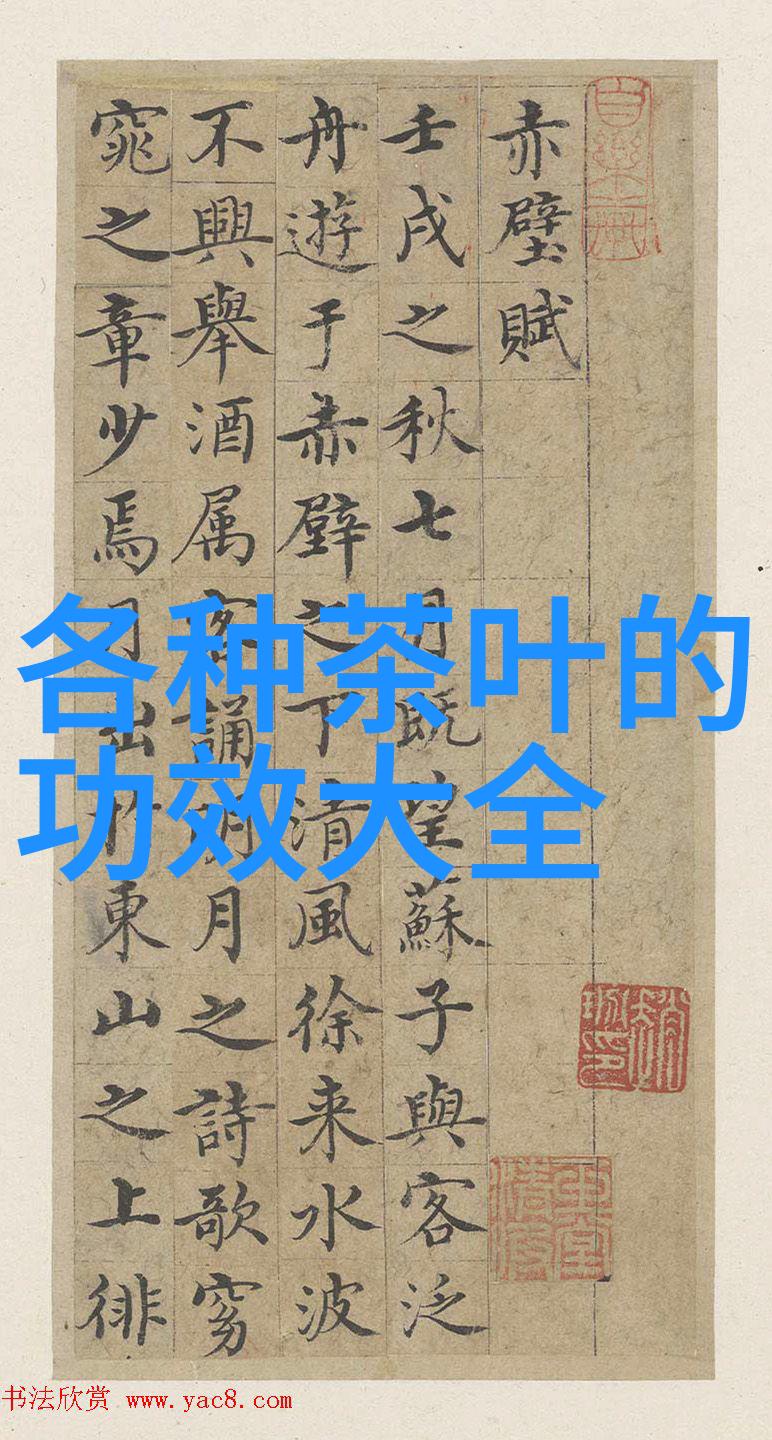 赤壁賦
壬戌之秋七月既望蘇子與客泛
舟遊于赤壁之下清風徐来水波
不興舉酒属客誦明月之詩歌窈
窕之章少焉月出於東山之上徘
各种茶叶的
功效大全
书法欣赏 www.yac8.com